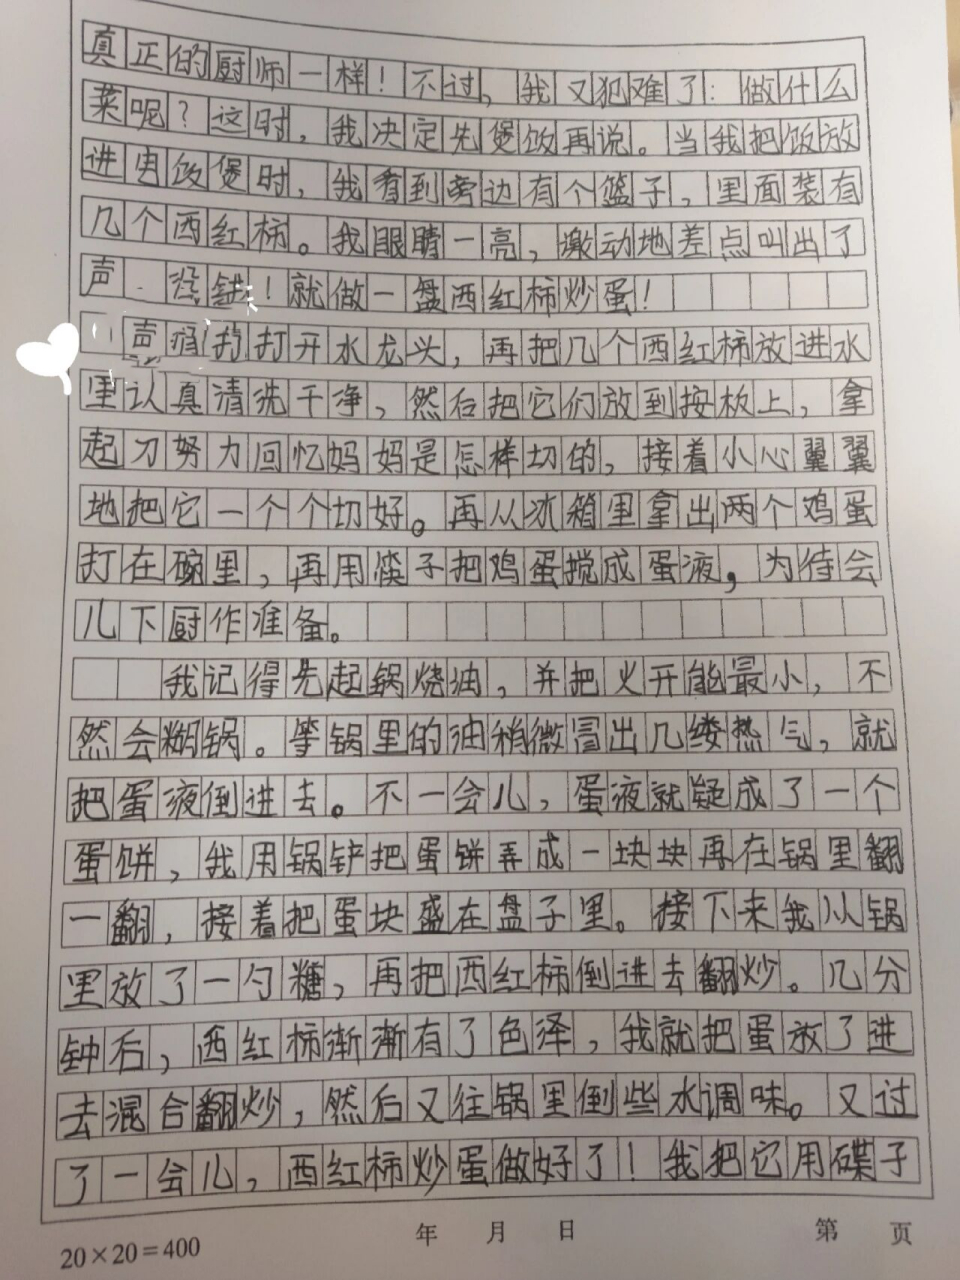 真正的厨师一样！不过，我又犯难了：做什么
菜呢？这时，我决定先煲饭再说。当我把饭放
进电饭煲时，我看到旁边有个篮子，里面装有
几个西红柿。我眼睛一亮，激动地差点叫出了
声 没错！就做一盘西红柿炒蛋！
声 打开水龙头，再把几个西红柿放进水
里认真清洗干净，然后把它们放到按板上，拿
起刀努力回忆妈妈是怎样切的，接着小心翼翼
地把它一个个切好。再从冰箱里拿出两个鸡蛋
打在碗里，再用筷子把鸡蛋搅成蛋液，为待会
儿下厨作准备。
我记得先起锅烧油，并把火开能最小，不
然会糊锅。等锅里的油稍微冒出几缕热气，就
把蛋液倒进去。不一会儿，蛋液就疑成了一个
蛋饼，我用锅铲把蛋饼弄成一块块再在锅里翻
一翻，接着把蛋块盛在盘子里。接下来我从锅
里放了一勺糖，再把西红柿倒进去翻炒。几分
钟后，西红柿渐渐有了色泽，我就把蛋放了进
去混合翻炒，然后又往锅里倒些水调味。又过
了一会儿，西红柿炒蛋做好了！我把它用碟子
20×20=400 年 月 日 第 页